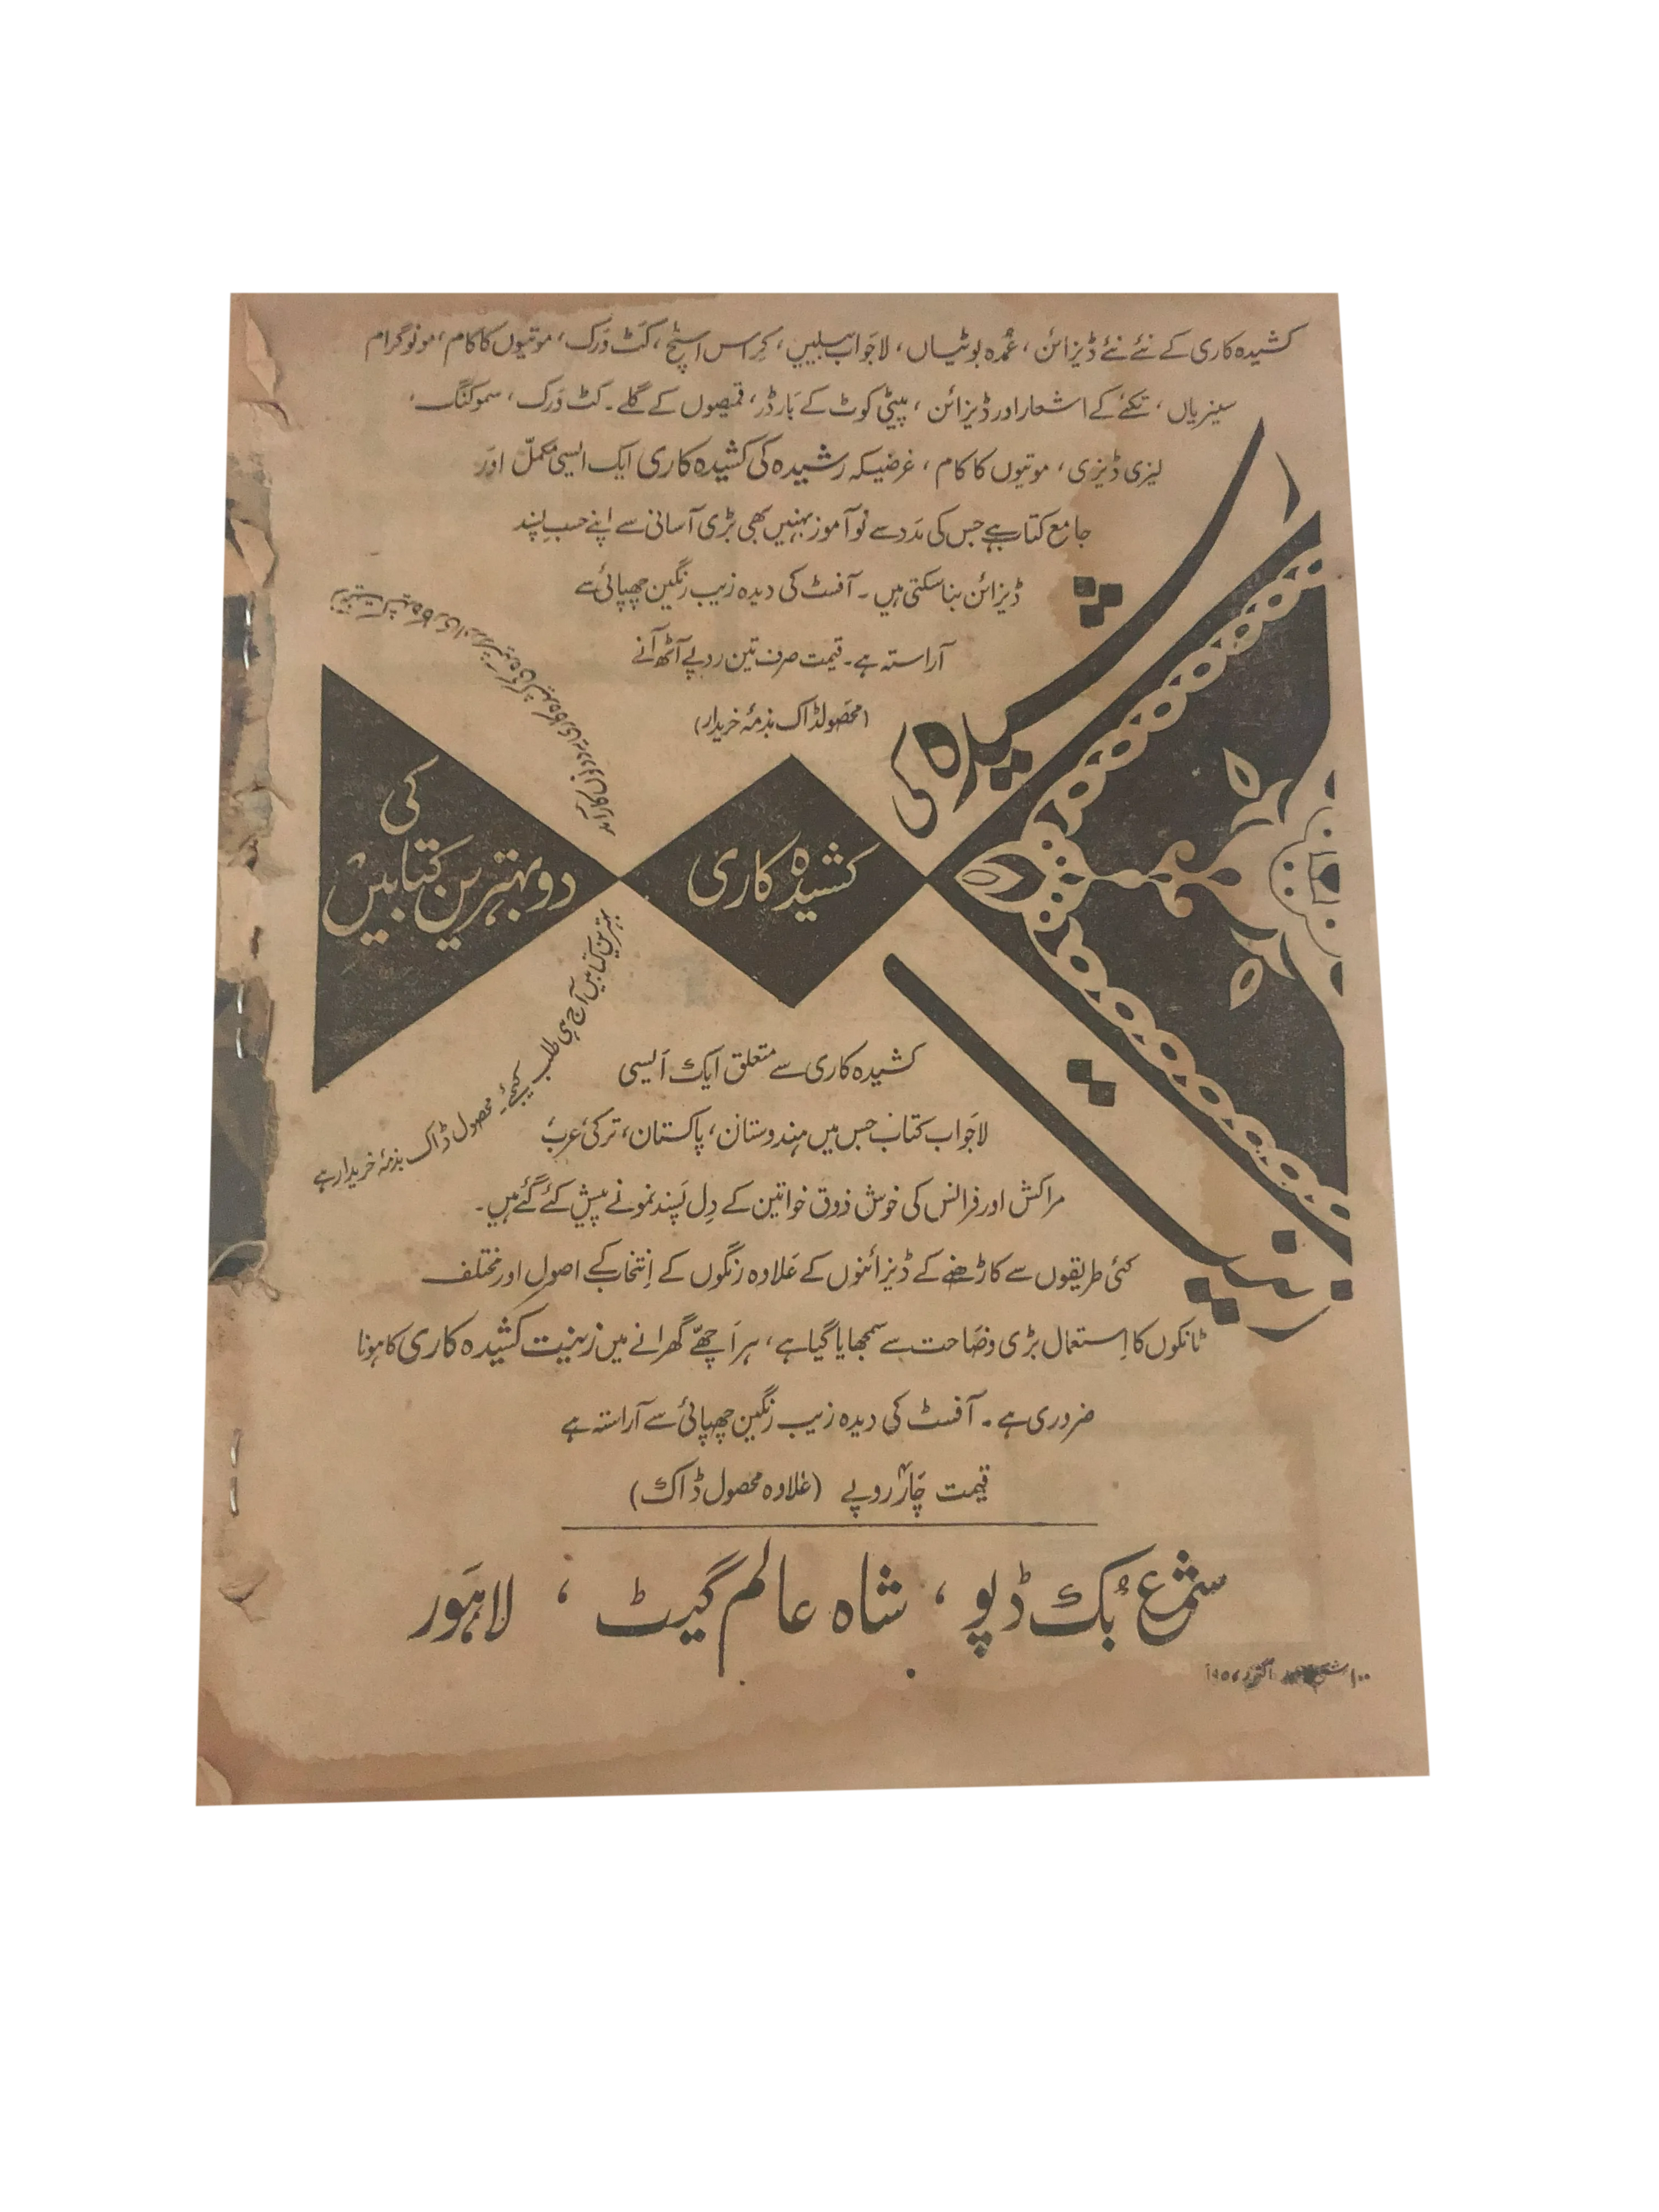 کشیدہ کاری کے نئے نئے ڈیزائن، عُمدہ بوٹیاں، لاجَواب بیلیں، کِراس اسٹچ، کَٹ وَرک، موتیوں کا کام، مونوگرام
سینریاں، تکئے کے اشعار اور ڈیزائن، پیٹی کوٹ کے بَارڈر، قمیصوں کے گلے۔ کٹ وَرک، سموکنگ،
لیزی ڈیزی، موتیوں کا کام، غرضیکہ رشیدہ کی کشیدہ کاری ایک ایسی مکملّ اور
جامع کتاب ہے جس کی مَدد سے نوآموز بہنیں بھی بڑی آسانی سے اپنے حسبِ پسند
ڈیزائن بنا سکتی ہیں۔ آفسٹ کی دیدہ زیب رنگین چھپائی سے
آراستہ ہے۔ قیمت صرف تین روپے آٹھ آنے
(محصولڈاک بذمۂ خریدار)
رشیدہ کی
کشیدہ کاری
کی
دو بہترین کتابیں
زینت کشیدہ کاری اور رشیدہ کی کشیدہ کاری یہ دونوں کارآمد
بہترین کتابیں آج ہی طلب کیجئے۔ محصول ڈاک بذمۂ خریدار ہے
زینت
کشیدہ کاری سے متعلق ایک اَیسی
لاجَواب کتاب جس میں ہندوستان، پاکستان، ترکی عرب
مراکش اور فرانس کی خوش ذوق خواتین کے دِل پَسند نمونے پیش کئے گئے ہیں۔
کئی طریقوں سے کاڑھنے کے ڈیزائنوں کے عَلاوہ رنگوں کے اِنتخاب کے اصول اور مختلف
ٹانکوں کا اِستعمال بڑی وضَاحت سے سمجھایا گیا ہے، ہر اَچھّے گھرانے میں زینت کشیدہ کاری کا ہونا
ضروری ہے۔ آفسٹ کی دیدہ زیب رنگین چھپائی سے آراستہ ہے
قیمت چَار روپے (عَلاوہ محصول ڈاک)
شمع بُک ڈپو، شاہ عالم گیٹ، لاہَور
۱۰۰ اکتوبر